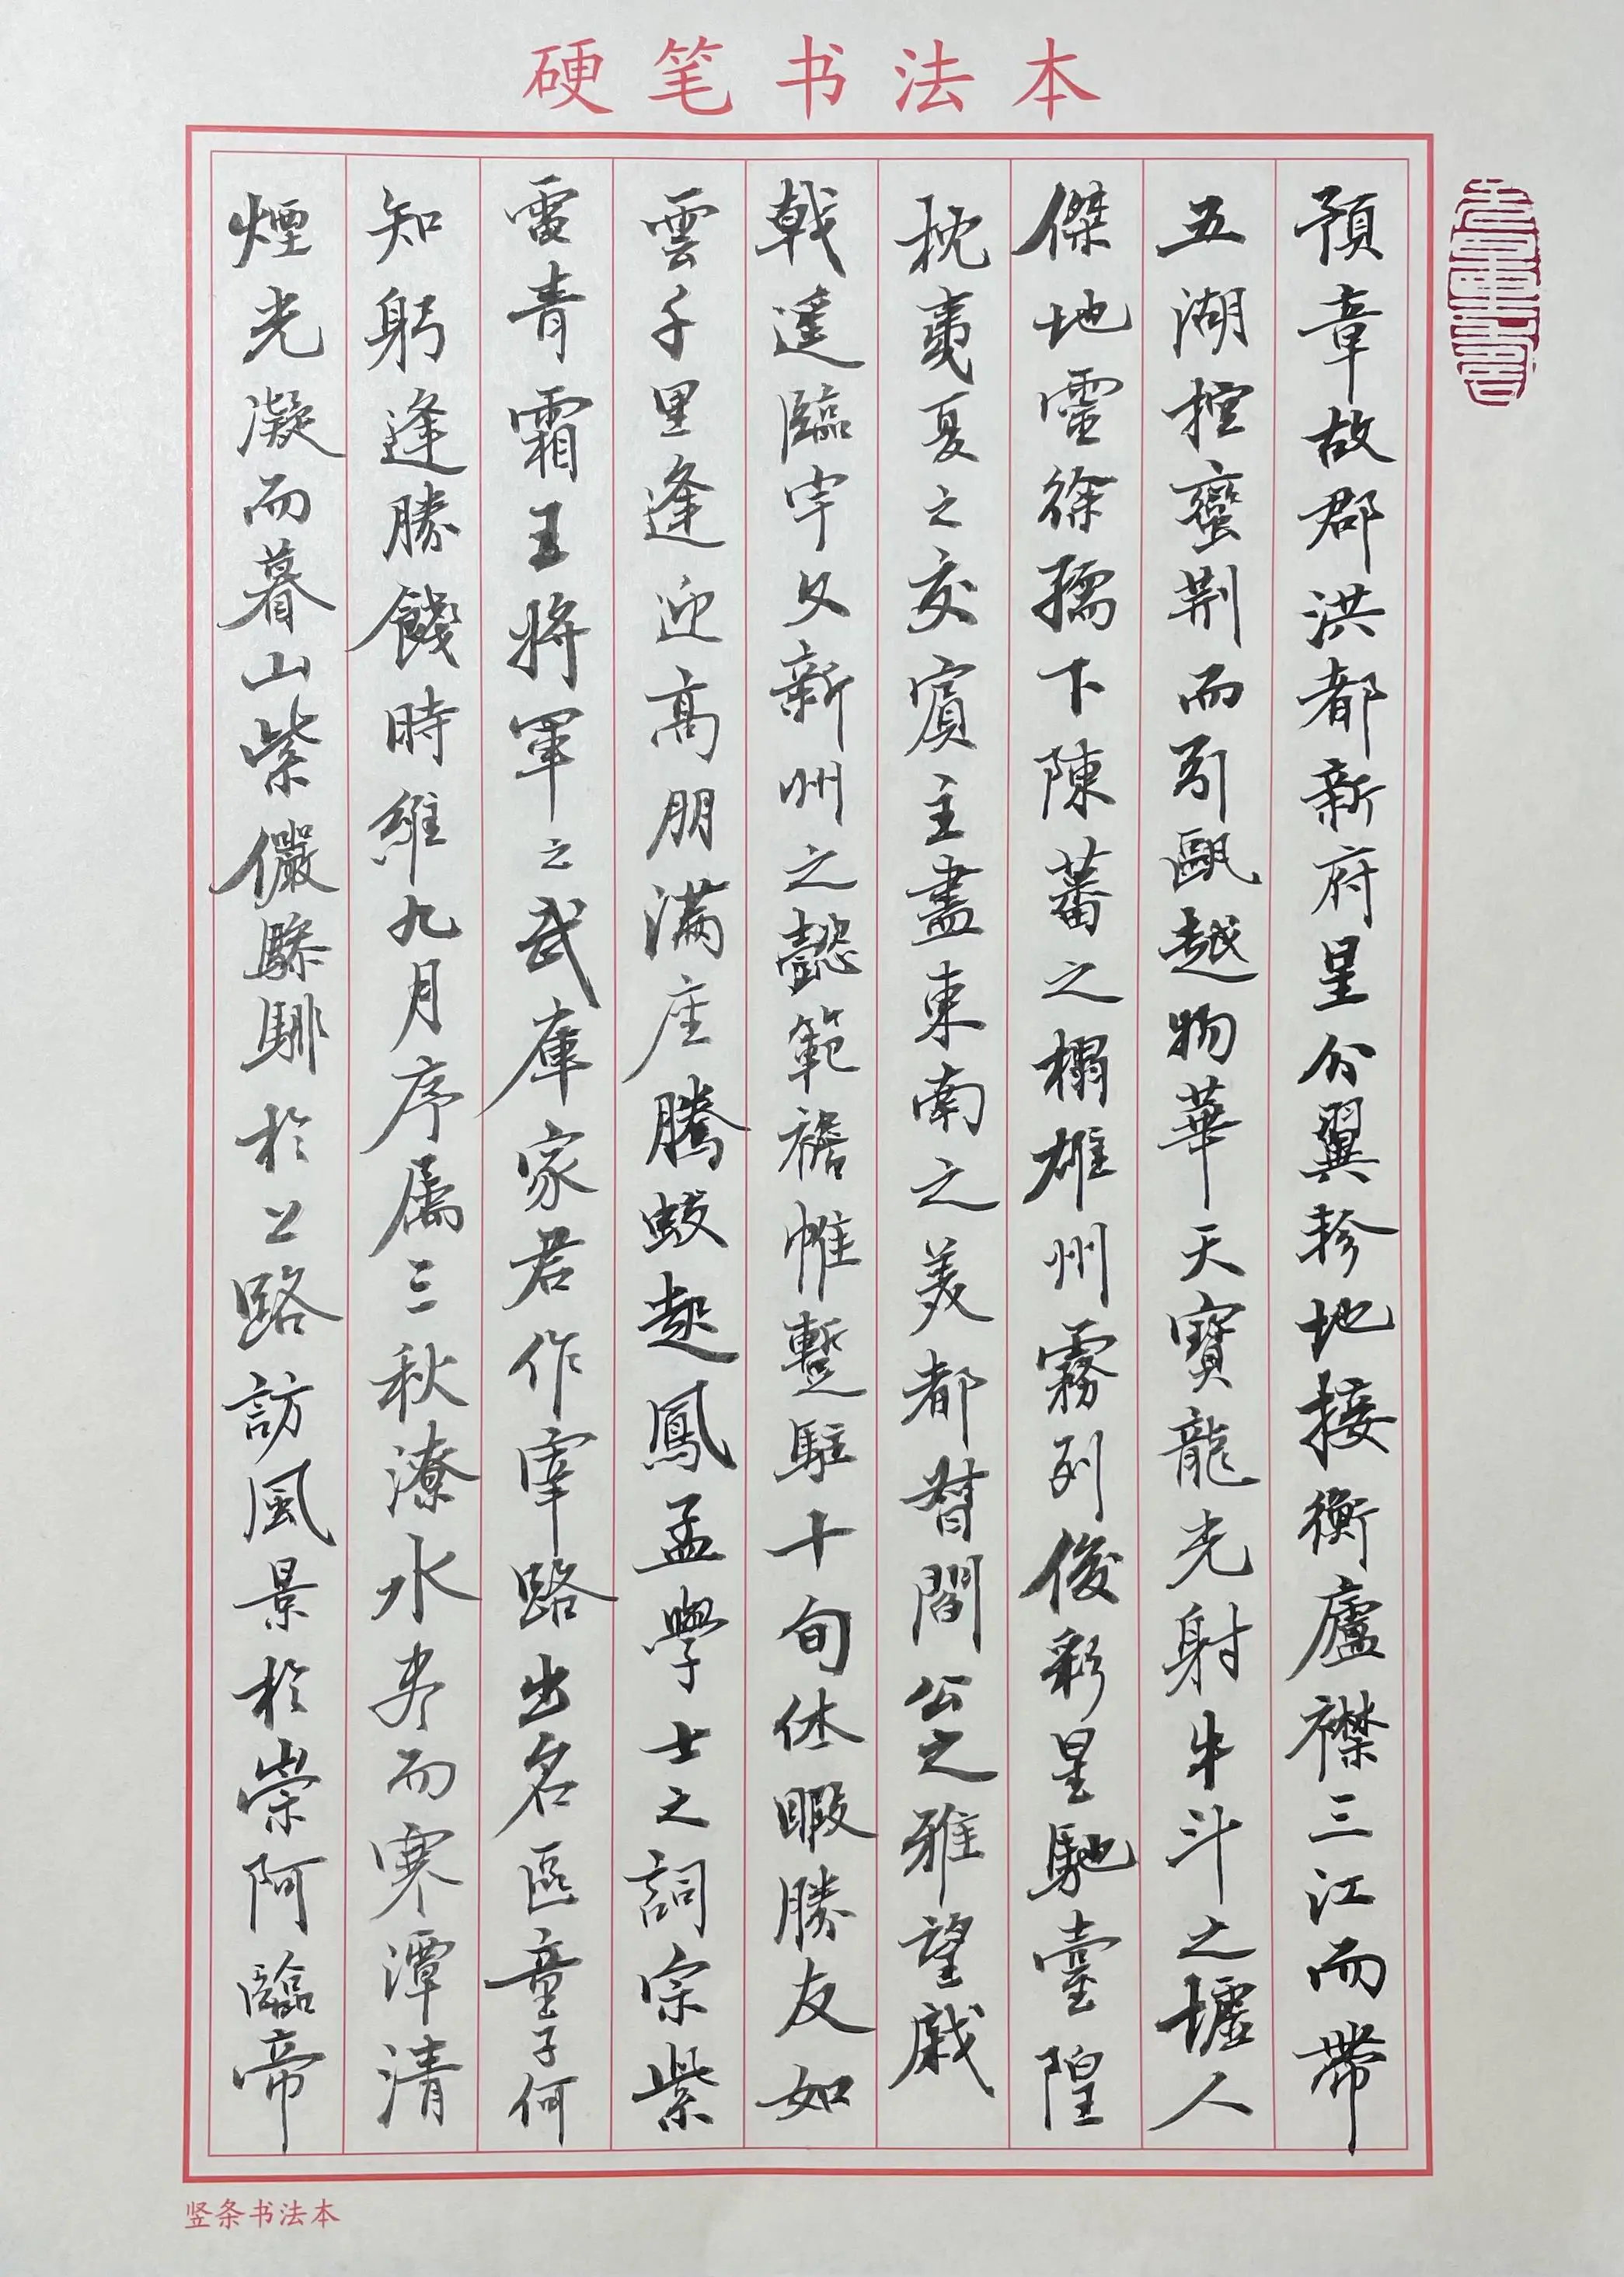 硬笔书法本
預章故郡洪都新府星分翼軫地接衡廬襟三江而帶
五湖控蠻荆而引甌越物華天寶龍光射牛斗之墟人
傑地靈徐孺下陳蕃之榻雄州霧列俊彩星馳臺隍
枕夷夏之交賓主盡東南之美都督閻公之雅望戚
戟遥臨宇文新州之懿範襜帷暫駐十旬休暇勝友如
雲千里逢迎高朋满座騰蛟起鳳孟學士之詞宗紫
雷青霜王將軍之武庫家君作宰路出名區童子何
知躬逢勝餞時維九月序属三秋潦水盡而寒潭清
煙光凝而暮山紫儼驂騑於上路訪風景於崇阿臨帝
竖条书法本